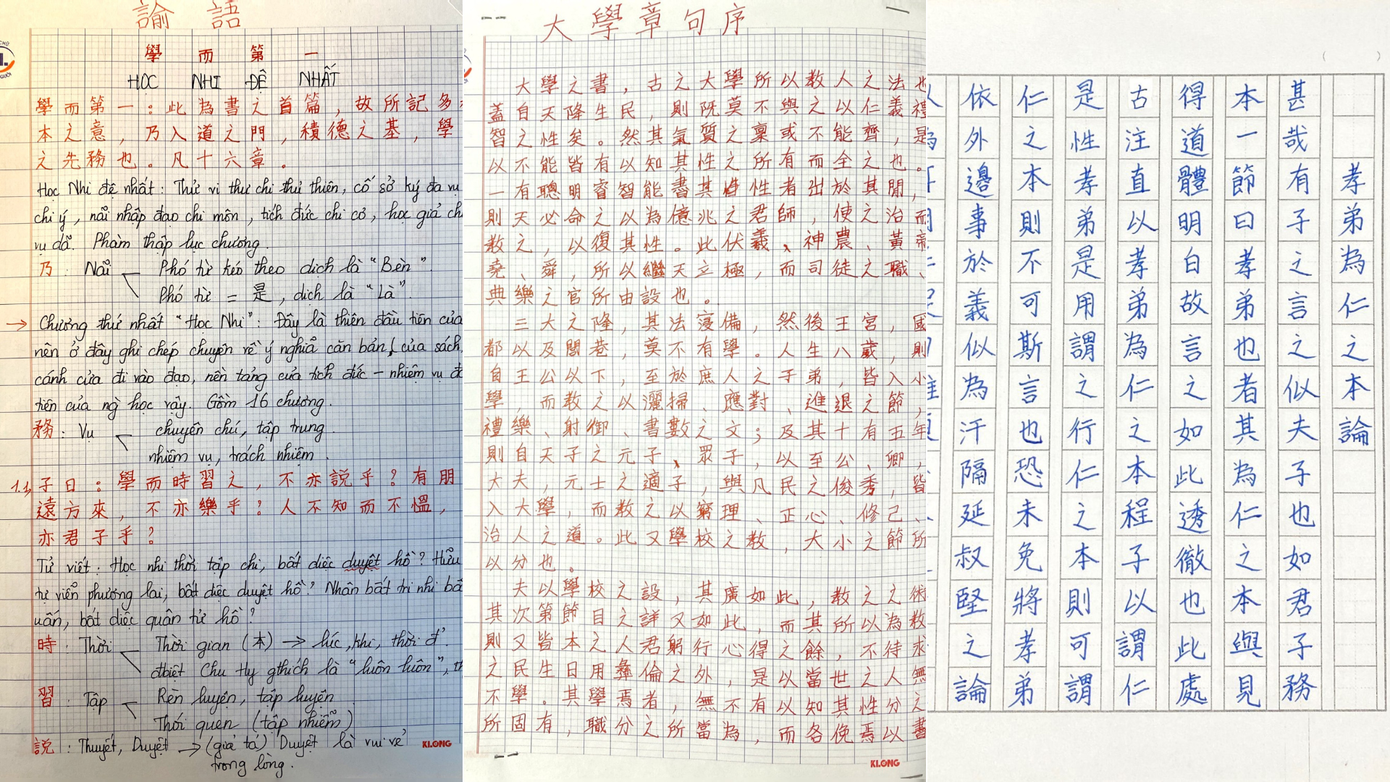 諭 語
學 而 第 一
HỌC NHI ĐỆ NHẤT
學而第一：此為書之首篇，故所記多
本之意，乃入道之門，積德之基，學
之先務也。凡十六章。
Học Nhi đệ nhất: Thử vi thư chi thủ thiên, cố sở ký đa vụ
chi ý, nãi nhập đạo chi môn, tích đức chi cơ, học giả ch
vụ dã. Phàm thập lục chương.
乃: Nãi
Phó từ kéo theo dịch là "Bèn".
Phó từ = 是, dịch là "Là".
→ Chương thứ nhất "Học Nhi": Đây là thiên đầu tiên của
nên ở đây ghi chép chuyện về ý nghĩa căn bản của sách,
cánh cửa đi vào đạo, nền tảng của tích đức – nhiệm vụ đ
tiên của ng` học vậy. Gồm 16 chương.
務: Vụ
chuyên chú, tập trung.
nhiệm vụ, trách nhiệm.
1.1, 子曰：學而時習之，不亦説乎？有朋
遠方來，不亦樂乎？人不知而不慍，
亦君子乎？
Tử viết: Học nhi thời tập chi, bất diệc duyệt hồ? Hữu
tự viễn phương lai, bất diệc duyệt hồ? Nhân bất tri nhi bấ
uấn, bất diệc quân tử hồ?
時: Thời
Thời gian (本) → lúc, khi, thời đ'.
đbiệt Chu Hy gthích là "luôn luôn", th
習: Tập
Rèn luyện, tập luyện.
Thói quen (tập nhiễm)
説: Thuyết, Duyệt → (giả tá) Duyệt là vui vẻ
trong lòng.
KLONG
大學章句序
大學之書，古之大學所以教人之法也
蓋自天降生民，則既莫不與之以仁義禮
智之性矣。然其氣質之稟或不能齊，是
以不能皆有以知其性之所有而全之也。
一有聰明睿智能書其性者出於其間，
則天必命之以為億兆之君師，使之治而
教之，以復其性。此伏羲、神農、黃帝
堯、舜，所以繼天立極，而司徒之職、
典樂之官所由設也。
三大之降，其法寖備，然後王宮，國
都以及閭巷，莫不有學。人生八歲，則
自王公以下，至於庶人之子弟，皆入小
學 而教之以灑掃、應對、進退之節，
禮樂、射御、書數之文；及其十有五年
則自天子之元子、眾子，以至公、卿，
大夫 元士之適子，與凡民之俊秀，皆
入大學，而教之以窮理、正心、修己、
治人之道。此又學校之教，大小之節所
以分也。
夫以學校之設，其廣如此，教之之術
其次第節目之詳又如此，而其所以為教
則又皆本之人君躬行心得之餘，不待求
之民生日用彝倫之外，是以當世之人無
不學。其學焉者，無不有以知其性分之
所固有，職分之所當為，而各俛焉以書
KLONG
孝弟為仁之本論
甚哉有子之言之似夫子也如君子務
本一節曰孝弟也者其為仁之本與見
得道體明白故言之如此透徹也此處
古注直以孝弟為仁之本程子以謂仁
是性孝弟是用謂之行仁之本則可謂
仁之本則不可斯言也恐未免將孝弟
依外邊事於義似為汗隔延叔堅之論